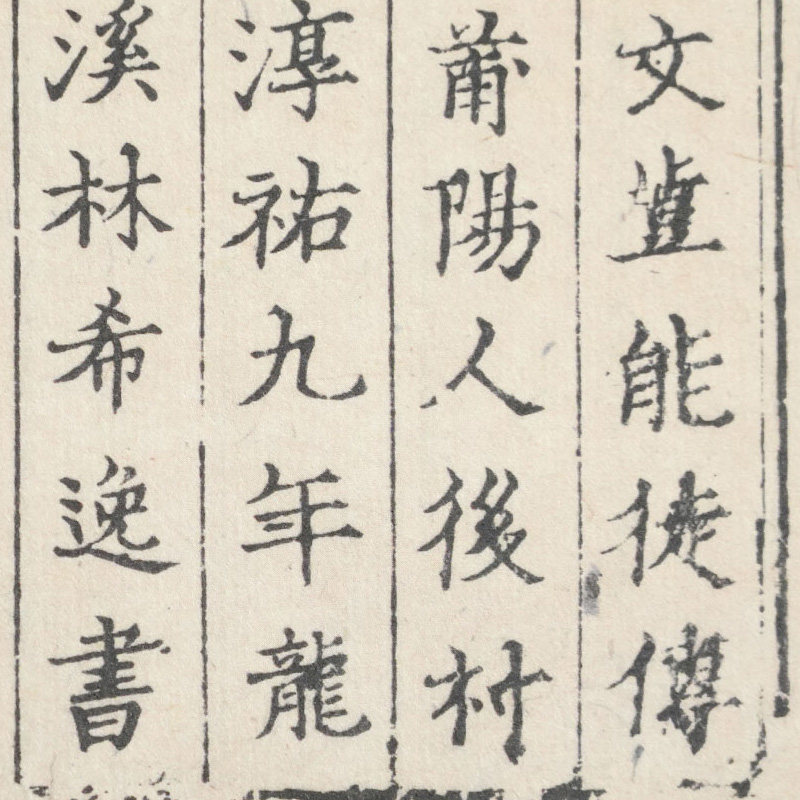 文豈能徒傳
莆陽人後村
淳祐九年龍
溪林希逸書